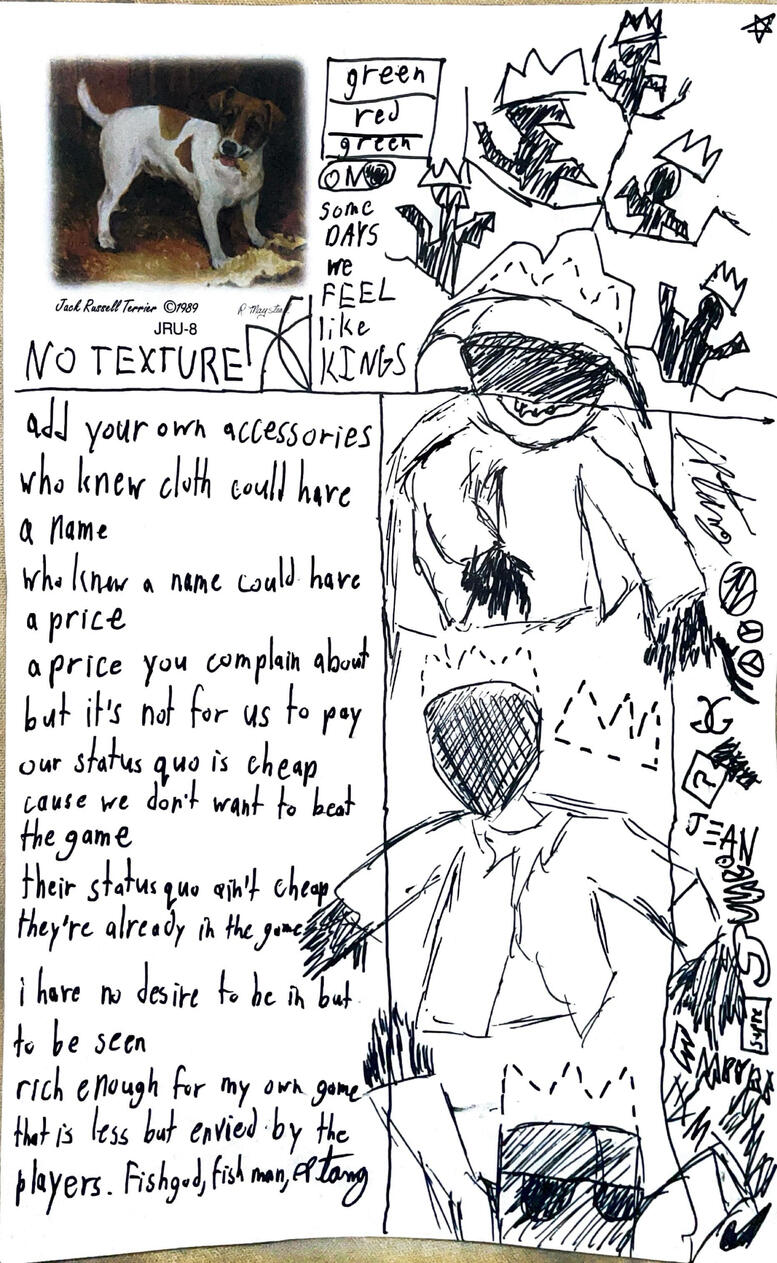 green
red
green
ON
some
DAYS
we
FEEL
like
KINGS
Jack Russell Terrier ©1989
JRU-8
NO TEXTURE
add your own accessories
who knew cloth could have
a name
who knew a name could have
a price
a price you complain about
but it's not for us to pay
our status quo is cheap
cause we don't want to beat
the game
their status quo ain't cheap
they're already in the game
i have no desire to be in but
to be seen
rich enough for my own game
that is less but envied by the
players. Fishgod, fish man,
?
JEAN